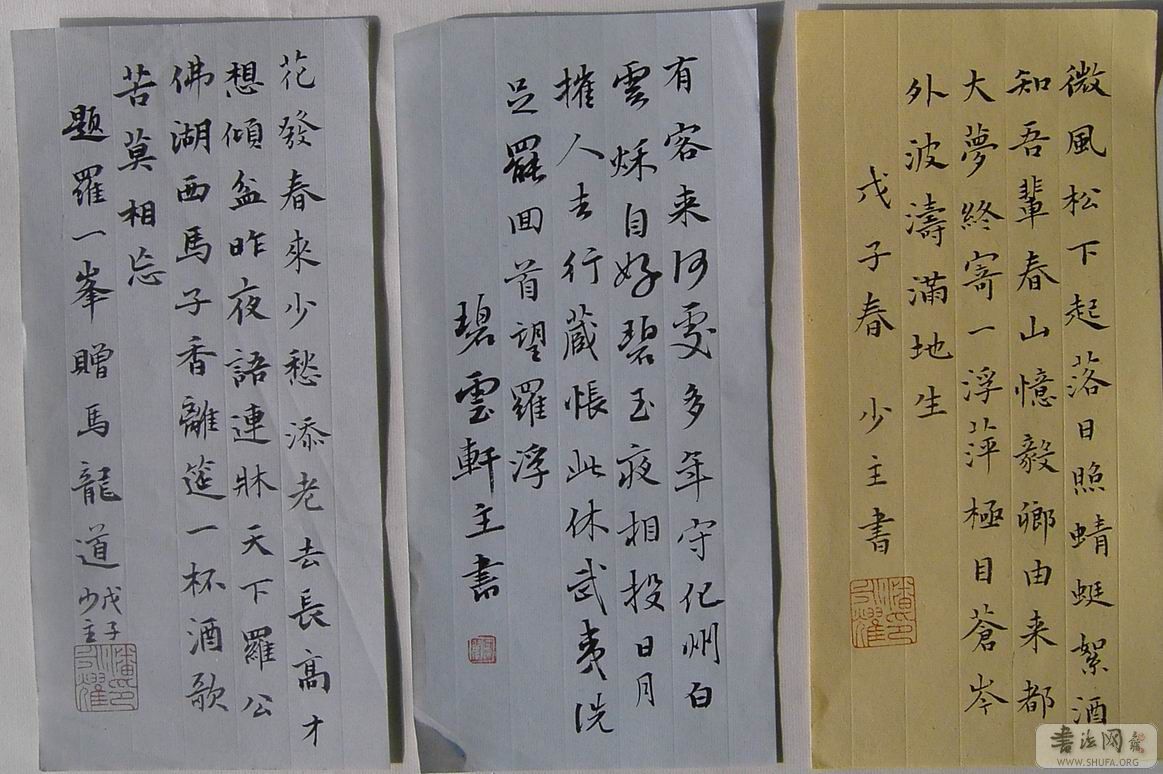 微風松下起落日照蜻蜓絮酒
知吾輩春山憶毅卿由来都
大夢終寄一浮萍極目蒼岑
外波濤滿地生
戊子春 少主書
有客来何處多年守化州白
雲稣自好碧玉夜相投日月
摧人去行藏悵此休武夷洗
足罷回首望羅浮
碧雲軒主書
花發春來少愁添老去長高才
想傾盆昨夜語連牀天下羅公
佛湖西馬子香離筵一杯酒歌
苦莫相忘
題羅一峯贈馬龍道
戊子
少主
书法网
WWW.SHUFA.ORG